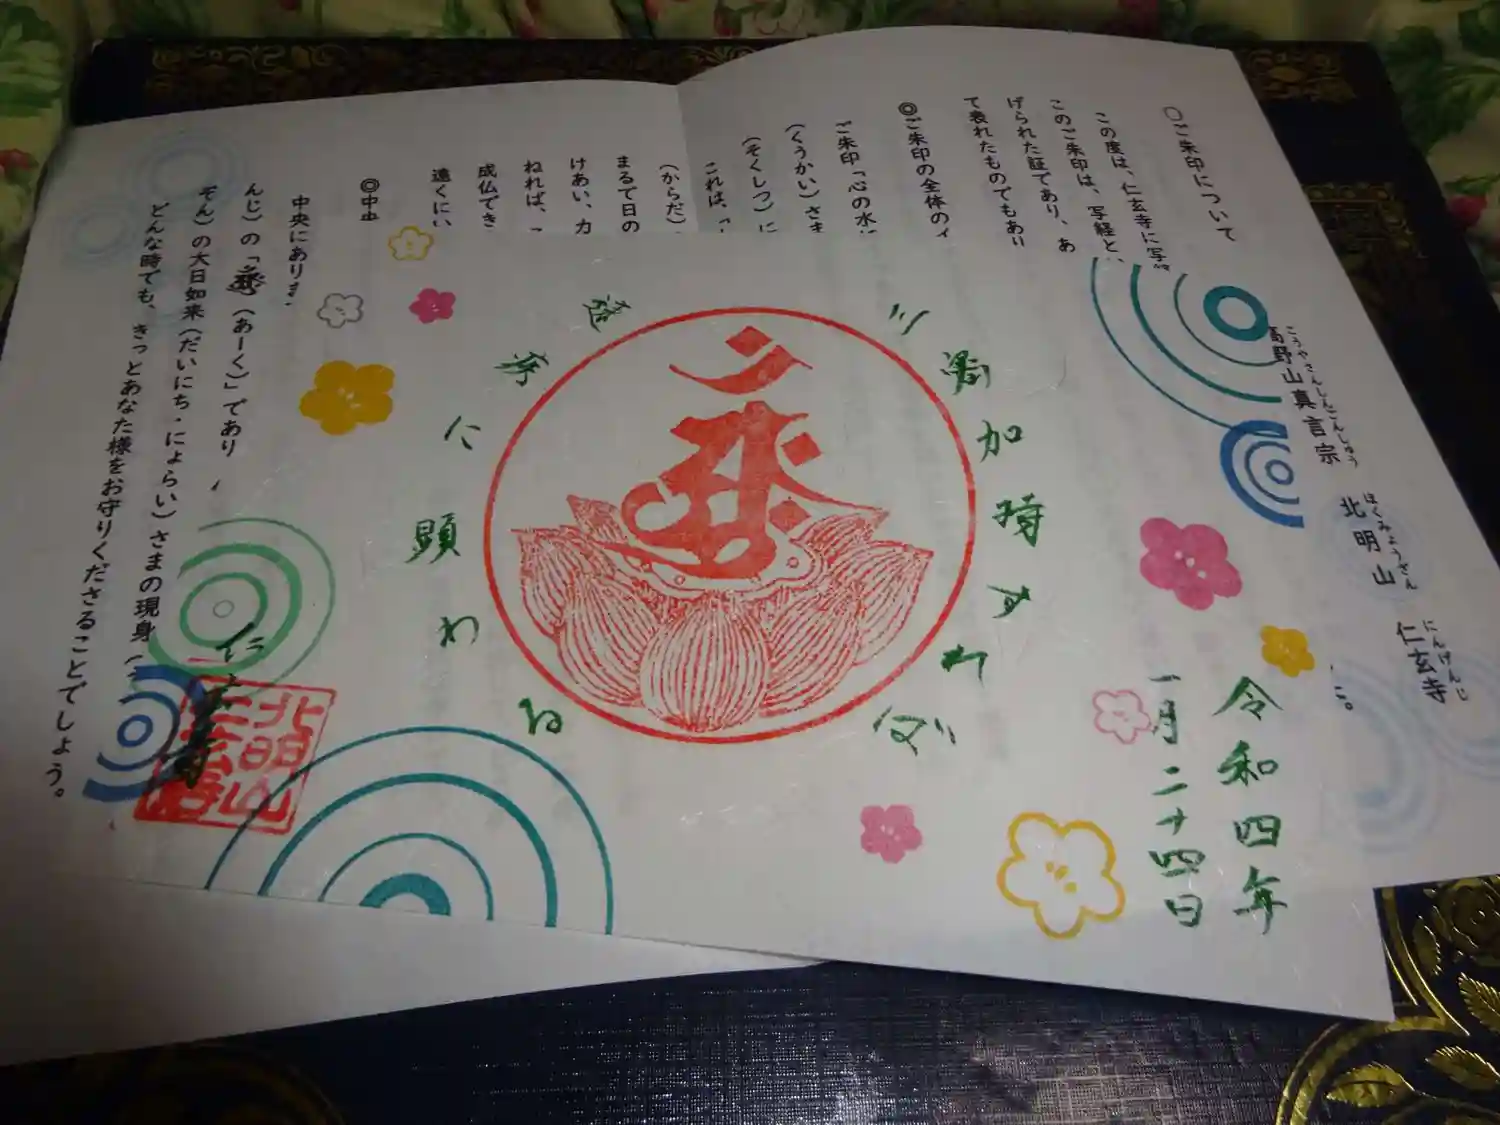 ○ご朱印について
この度は、仁玄寺に写
このご朱印は、写経と
げられた証であり、あ
て表れたものでもあり
◎ご朱印の全体の
ご朱印「心の水
(くうかい)さま
(そくしつ)に
これは、「
(からだ)
まるで日の
けあい、力
ねれば、
成仏でき
遠くにい
◎中央
中央にありま
んじ)の「 (あーく)」であり
ぞん)の大日如来(だいにち・にょらい)さまの現身(
どんな時でも、きっとあなた様をお守りくださることでしょう。
こうやさんしんごんしゅう ほくみょうざん にんげんじ
高野山真言宗 北明山 仁玄寺
こ。
三密加持すれば
速疾に顕わる
令和四年
一月二十四日
仁玄寺
北明山
仁玄寺